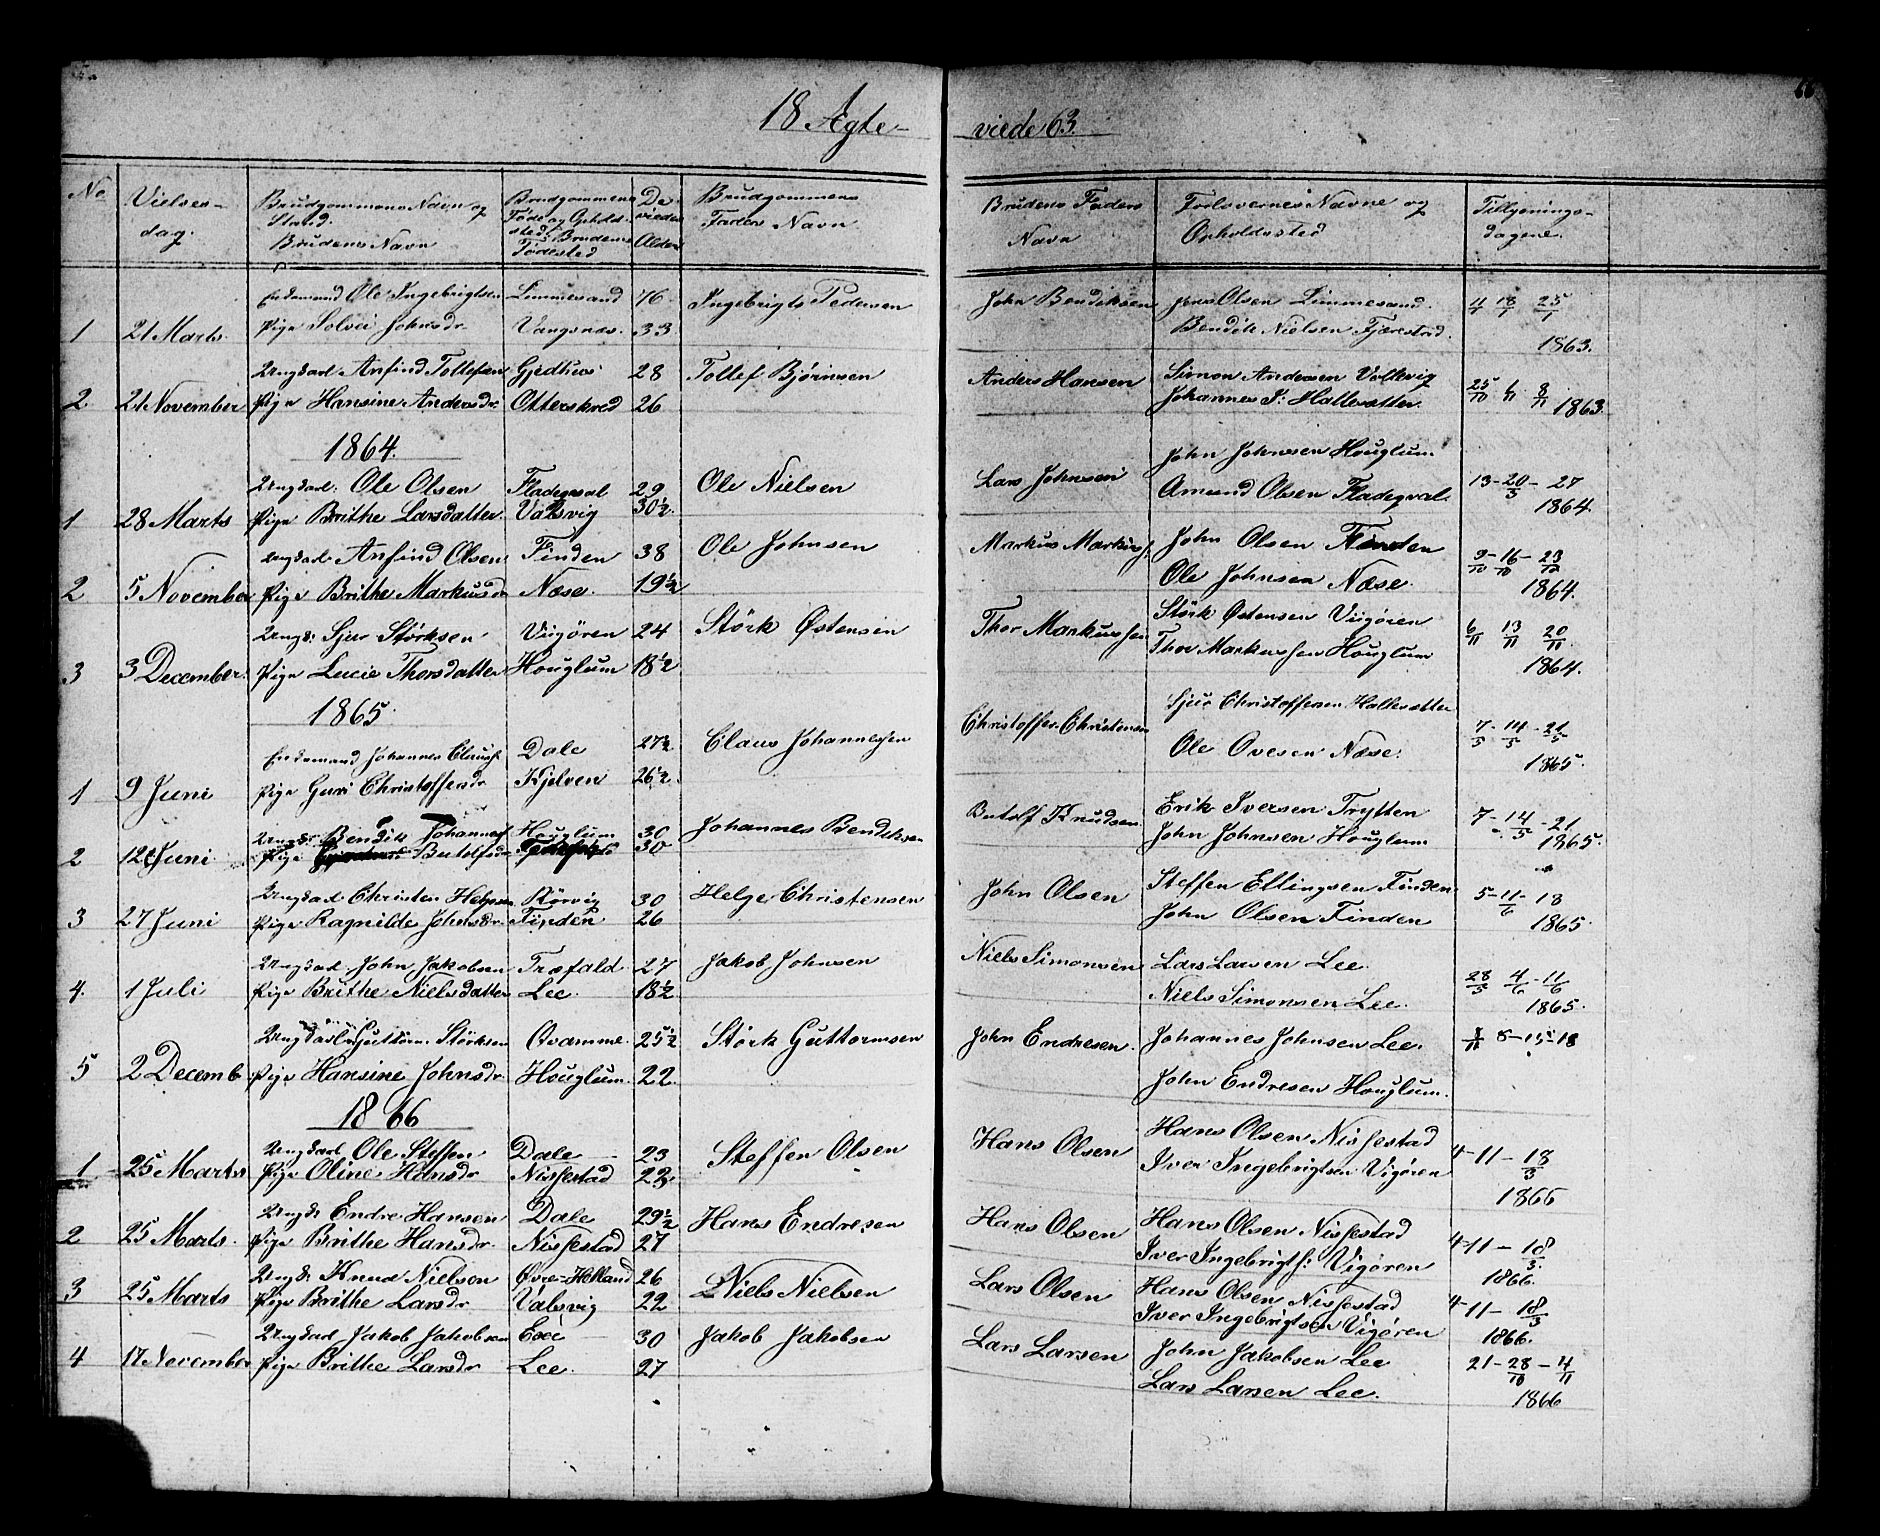 18 Ægte- viede 63.
No
Vielses-
dag.
Brudgommens Navn og
Stand.
Brudens Navn
Brudgommens
Føde og Opholds
sted. Brudens
Fødested
De
viedes
Alder
Brudgommens
Faders Navn
Brudens Faders
Navn
Forlovernes Navne og
Opholdssted
Tillysnings-
dagene.
Enkemand Ole Ingebrigtsen Limmesand 76 Ingebrigt Pedersen John Bendiksen Jens Olsen Limmesand. 4 18/1 25/1
1 21 Marts. Pige Solvei Johnsdr Vangsnæs. 33 Bendik Nielsen Fjærestad. 1863.
Ungkarl Anfind Tollefsen Gjedhus 28 Tollef Bjørnsen Anders Hansen Simon Andersen Valkvig 25/10 1/11 8/11
2 21 November Pige Hansine Andersdr Otterskred 26 Johannes I: Hallesætter. 1863.
1864.
Ungkarl. Ole Olsen Fladeqval 29 Ole Nielsen Lars Johnsen John Johnsen Houglum 13-20/3-27
1 28 Marts Pige Brithe Larsdatter Valsvig 30½. Amund Olsen Fladeqval. 1864.
Ungkarl Anfind Olsen Finden 38 Ole Johnsen Markus Markuss: John Olsen Finden 9/10-16/10-23/10
2 5 November Pige Brithe Markusdr Næse. 19½ Ole Johnsen Næse. 1864.
Ungk: Sjur Størksen Viigøren 24 Størk Østensen Thor Markussen Størk Østensen Viigøren 6/11 13/11 20/11
3 3 December. Pige Lucie Thorsdatter Houglum 18½ Thor Markussen Houglum 1864.
1865.
Enkemand Johannes Clauss: Dale 27½ Claus Johannessen Christoffer Christensen Sjur Christoffersen Hallesætter 7/5-14/5-21/5
1 9 Juni Pige Guri Christoffersdr Kjelven 26½. Ole Ovesen Næse. 1865.
Ungk: Bendik Johannesf Houglum 30 Johannes Bendiksen Butolf Knudsen Erik Iversen Trytten 7-14/5-21
2 12 Juni Pige Butolfsdr 30 John Johnsen Houglum 1865.
Ungkarl Christen Helgesen Rørvig 30 Helge Christensen John Olsen Steffen Ellingsen Finden 5-11/6-18
3 27 Juni Pige Ragnilde Johnsdr. Finden 26 John Olsen Finden 1865.
Ungkarl John Jakobsen Træfald 27 Jakob Johnsen Niels Simonsen Lars Larsen Lee. 28/5 4/6-11/6
4. 1 Juli Pige Brithe Nielsdatter Lee. 18½ Niels Simonsen Lee. 1865.
Ungkarl Guttorm Størksen Qvamme. 25½ Størk Guttormsen John Endresen. Johannes Johnsen Lee. 8-15-18
5 2 Decemb. Pige Hansine Johnsdr Houglum. 22. John Endresen Houglum.
1866
Ungkarl Ole Steffen Dale 23 Steffen Olsen Hans Olsen Hans Olsen Nissestad 4-11-18/3
1 25 Marts Pige Oline Hansdr Nissestad 22. Iver Ingebrigtsen Vigøren 1866
Ungk: Endre Hansen Dale 29½ Hans Endresen Hans Olsen Hans Olsen Nissestad 4-11-18/3.
2 25 Marts. Pige Brithe Hansdr. Nissestad 27 Iver Ingebrigts: Vigøren 1866.
Ungk: Knud Nielson Øvre-Hetland 26 Niels Nielsen Lars Olsen Hans Olsen Nissestad 4-11-18/3
3 25 Marts Pige Brithe Larsdr Valsvig 22 Iver Ingebrigtsen Vigøren 1866.
Ungkarl Jakob Jakobsen Ese 30 Jakob Jakobsen Lars Larsen John Jakobsen Lee 21-28/10-4/11
4 17 November Pige Brithe Larsdr Lee. 27 Lars Larsen Lee. 1866